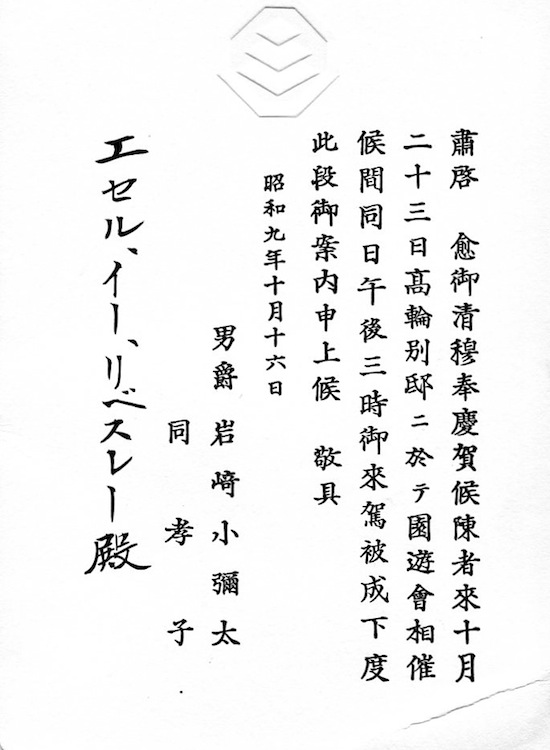 肅啓　愈御清穆奉慶賀候陳者來十月
二十三日高輪別邸ニ於テ園遊會相催
候間同日午後三時御來駕被成下度
此段御案内申上候　敬具
昭和九年十月十六日
男爵 岩崎小彌太
同 孝子
エセル、イー、リベスレー殿